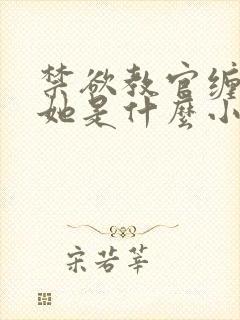 禁欲教官缠
她是什麼小
宋若莘